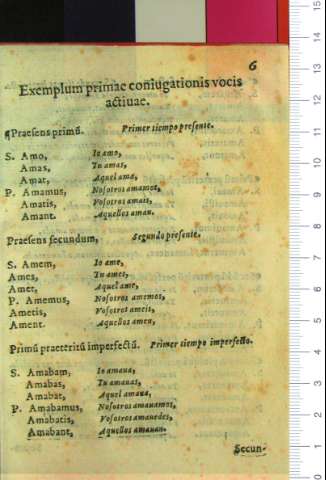 6
Exemplum primae coniugationis vocis
actiuae.
¶Praesens primũ. Primer tiempo presente.
S. Amo, Io amo,
Amas, Tu amas,
Amat, Aquel ama,
P. Amamus, Nosotros amamos,
Amatis, Vosotros amais,
Amant. Aquellos aman.
Praesens secundum, Segundo presente.
S. Amem, Io ame,
Ames, Tu ames,
Amet, Aquel ame,
P. Amemus, Nosotros amemos,
Ametis, Vosotros ameis,
Ament. Aquellos amen,
Primũ praeteritũ imperfectũ. Primer tiempo imperfecto.
S. Amabam, Io amaua,
Amabas, Tu amauas,
Amabat, Aquel amaua,
P. Amabamus, Nosotros amauamos,
Amabatis, Vosotros amauades,
Amabant, Aquellos amauan.
Secun-